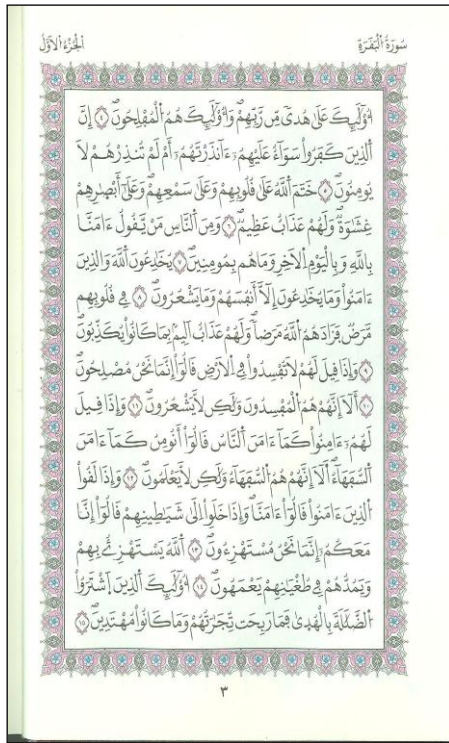 سُورَةُ الْبَقَرَةِ
الْجُزْءُ الْأَوَّلُ
أُوْلَٰٓئِكَ عَلَىٰ هُدىً مِّن رَّبِّهِمْ وَأُوْلَٰٓئِكَ هُمُ الْمُفْلِحُونَ ٤ إِنَّ
اَ۬لذِينَ كَفَرُواْ سَوَآءٌ عَلَيْهِمُۥٓ ءَآنذَرْتَهُمُۥٓ أَمْ لَمْ تُنذِرْهُمْ لَا
يُومِنُونَ ٥ خَتَمَ اَ۬للَّهُ عَلَىٰ قُلُوبِهِمْ وَعَلَىٰ سَمْعِهِمْ وَعَلَىٰٓ أَبْصَٰرِهِمْ
غِشَٰوَةٌ وَلَهُمْ عَذَابٌ عَظِيمٌ ٦ وَمِنَ اَ۬لنَّاسِ مَنْ يَّقُولُ ءَامَنَّا
بِاللَّهِ وَبِالْيَوْمِ اِ۬لَاخِرِ وَمَا هُم بِمُومِنِينَ ٧ يُخَٰدِعُونَ اَ۬للَّهَ وَالذِينَ
ءَامَنُواْ وَمَا يُخَٰدِعُونَ إِلَّآ أَنفُسَهُمْ وَمَا يَشْعُرُونَ ٨ فِى قُلُوبِهِم
مَّرَضٌ فَزَادَهُمُ اُ۬للَّهُ مَرَضاً وَلَهُمْ عَذَابٌ اَلِيمٌ بِمَا كَانُواْ يُكَذِّبُونَ
٩ وَإِذَا قِيلَ لَهُمْ لَا تُفْسِدُواْ فِى اِ۬لَارْضِ قَالُوٓاْ إِنَّمَا نَحْنُ مُصْلِحُونَ
١٠ أَلَآ إِنَّهُمْ هُمُ اُ۬لْمُفْسِدُونَ وَلَٰكِن لَّا يَشْعُرُونَ ١١ وَإِذَا قِيلَ
لَهُمُۥٓ ءَامِنُواْ كَمَآ ءَامَنَ اَ۬لنَّاسُ قَالُوٓاْ أَنُومِنُ كَمَآ ءَامَنَ
اَ۬لسُّفَهَآءُ أَلَآ إِنَّهُمْ هُمُ اُ۬لسُّفَهَآءُ وَلَٰكِن لَّا يَعْلَمُونَ ١٢ وَإِذَا لَقُواْ
اُ۬لذِينَ ءَامَنُواْ قَالُوٓاْ ءَامَنَّا وَإِذَا خَلَوِاْ اِلَىٰ شَيَٰطِينِهِمْ قَالُوٓاْ إِنَّا
مَعَكُمُۥٓ إِنَّمَا نَحْنُ مُسْتَهْزِءُونَ ١٣ اَ۬للَّهُ يَسْتَهْزِئُ بِهِمْ
وَيَمُدُّهُمْ فِى طُغْيَٰنِهِمْ يَعْمَهُونَ ١٤ أُوْلَٰٓئِكَ اَ۬لذِينَ اَ۪شْتَرَوُاْ
اُ۬لضَّلَٰلَةَ بِالْهُدَىٰ فَمَا رَبِحَت تِّجَٰرَتُهُمْ وَمَا كَانُواْ مُهْتَدِينَ ١٥
٣